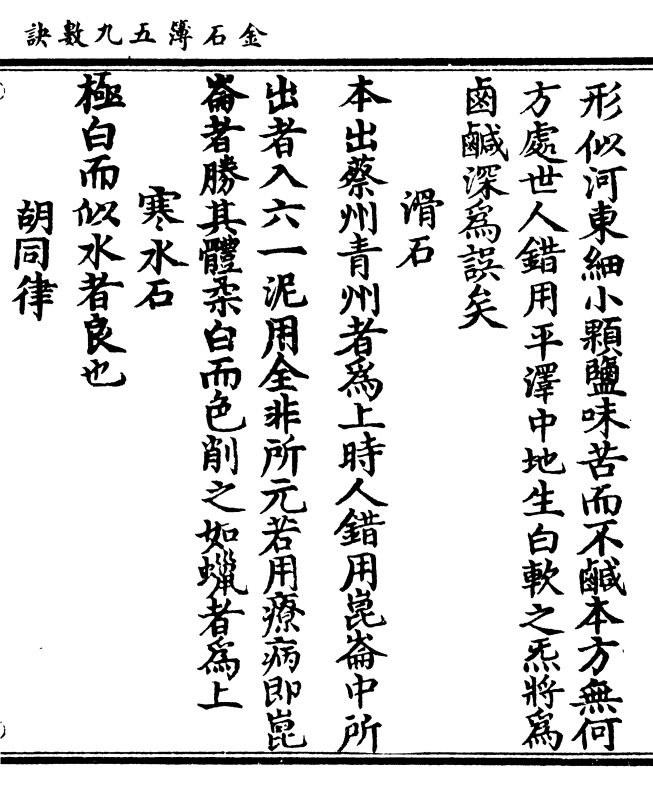 金石簿五九數訣
形似河東細小顆鹽味苦而不鹹本方無何
方處世人錯用平澤中地生白軟之炁將為
鹵鹹深為誤矣
滑石
本出蔡州青州者為上時人錯用崑崙中所
出者入六一泥用全非所元若用療病即崑
崙者勝其體柔白而色削之如蠟者為上
寒水石
極白而似水者良也
胡同律